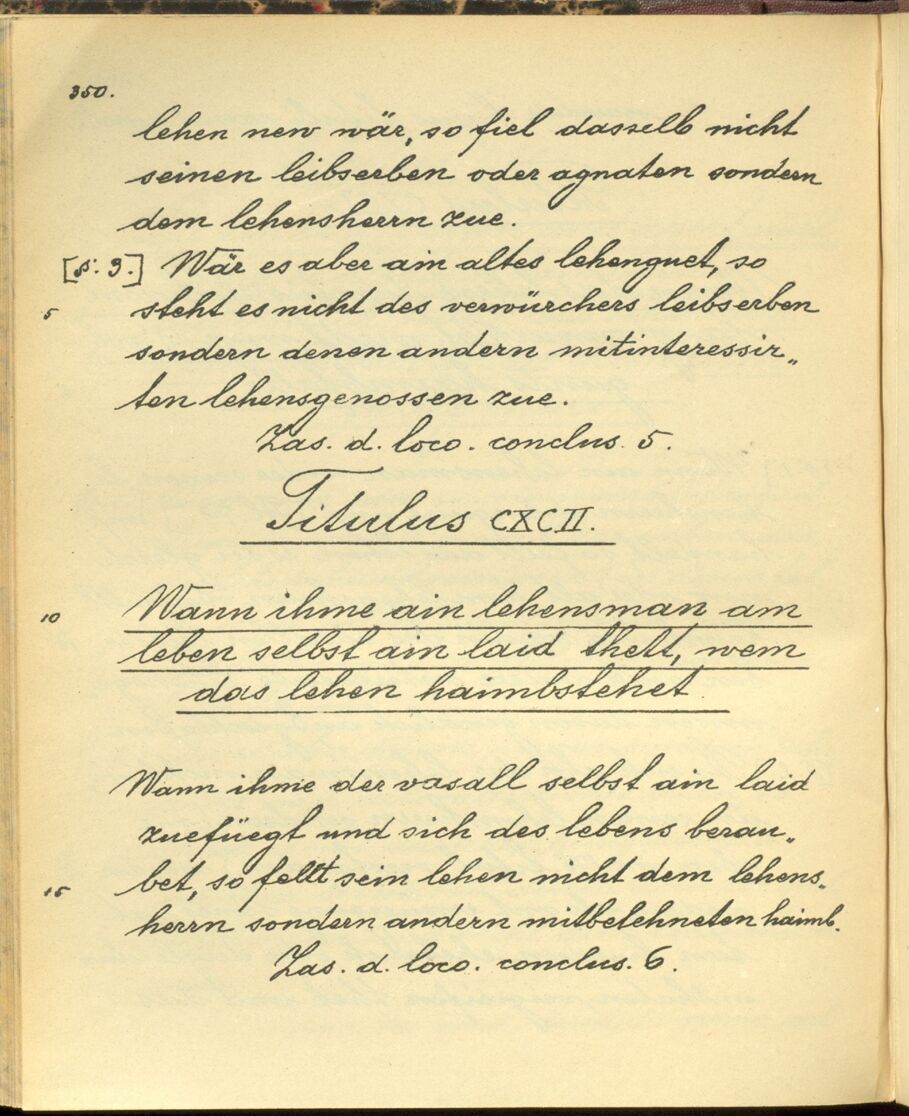 350.
lehen new wär, so fiel dasselb nicht
seinen leibserben oder agnaten sondern
dem lehensherrn zue.
[§. 3.] Wär es aber ain altes lehenguet, so
5 steht es nicht des verwürchers leibserben
sondern denen andern mitinteressir„
ten lehensgenossen zue.
Zas. d. loco. conclus. 5.
Titulus CXCII.
10 Wann ihme ain lehensman am
leben selbst ain laid thett, wem
das lehen haimbstehet
Wann ihme der vasall selbst ain laid
zuefüegt und sich des lebens berau„
15 bet, so fellt sein lehen nicht dem lehens„
herrn sondern andern mitbelehneten haimb.
Zas. d. loco. conclus. 6.